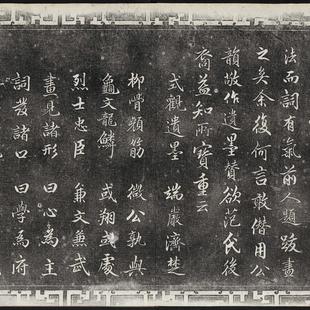 法而詞有氣前人題跋盡
之矣余復何言輙借用公
韻敬作遺墨贊欲范氏後
裔益知所寶重云
式觀遺墨 端嚴濟楚
柳骨顏筋 微公孰與
龜文龍鱗 或翔或處
烈士忠臣 兼文兼武
畫見諸形 曰心為主
詞發諸口 曰學為府